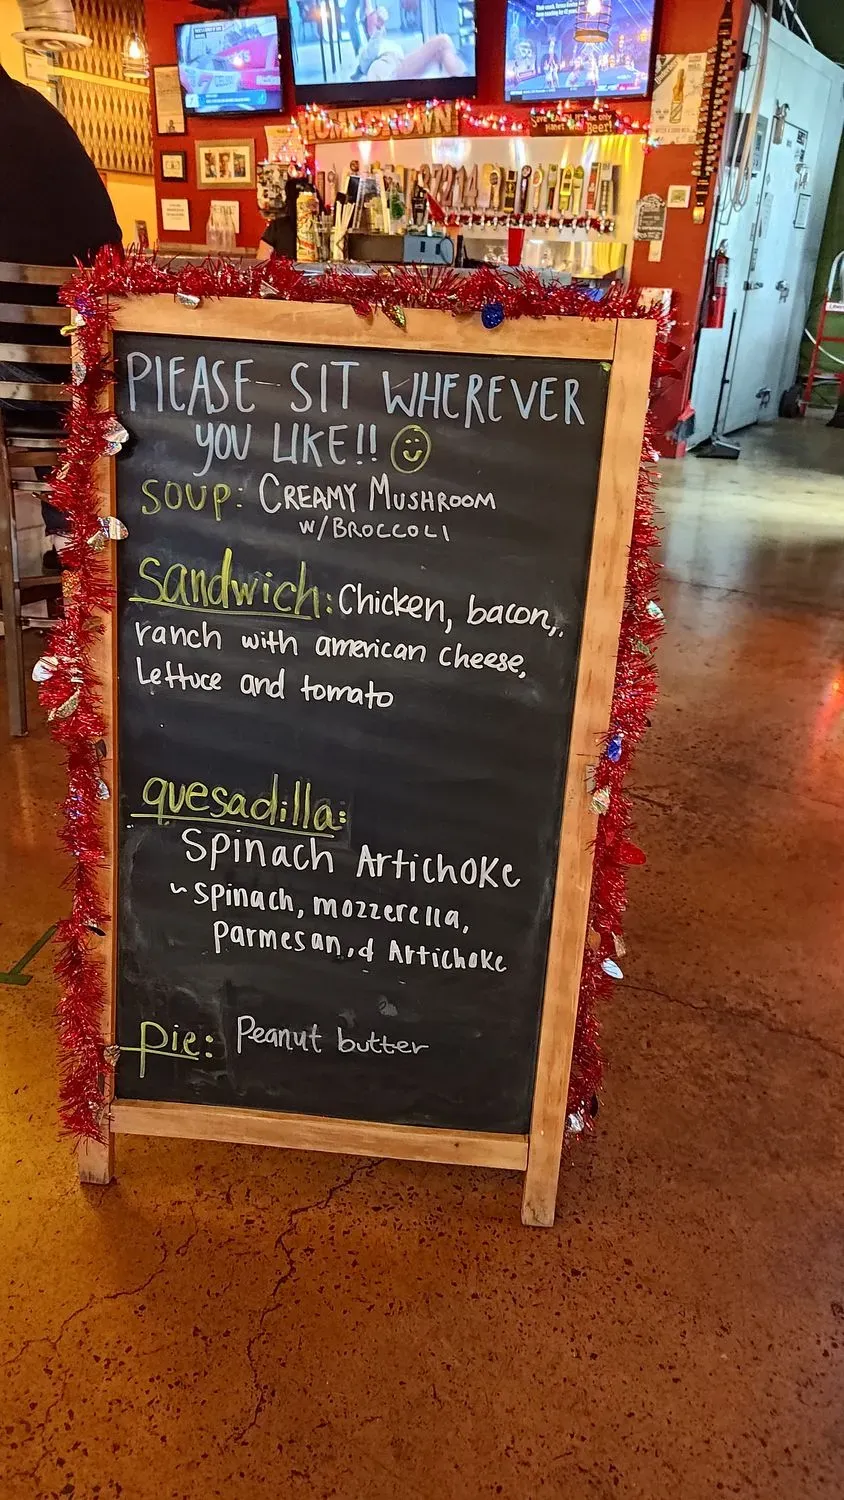 HOMEGROWN
PlEASE SIT WHEREVER
YOU LIKE!!
SOUP: CREAMY MUSHROOM
W/BROCCOLI
Sandwich: Chicken, bacon,
ranch with american cheese,
Lettuce and tomato
quesadilla:
Spinach Artichoke
~ spinach, mozzerella,
Parmesan, & Artichoke
Pie: Peanut butter